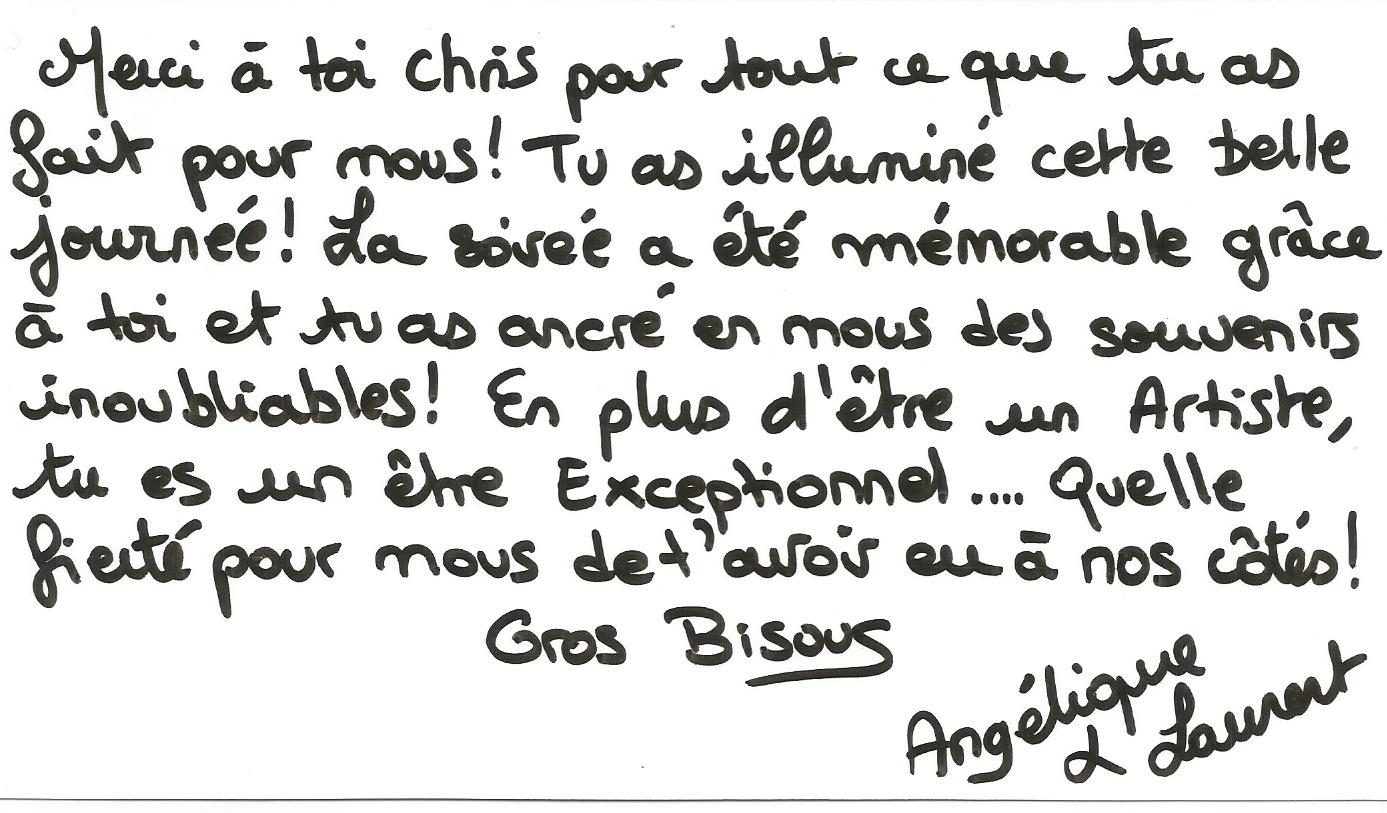 Merci à toi Chris pour tout ce que tu as
fait pour nous! Tu as illuminé cette belle
journéé! La soireé a été mémorable grâce
à toi et tu as ancré en nous des souvenirs
inoubliables! En plus d'être un Artiste,
tu es un être Exceptionnel.... Quelle
fierté pour nous de t'avoir eu à nos côtés!
Gros Bisous
Angélique
& Laurent